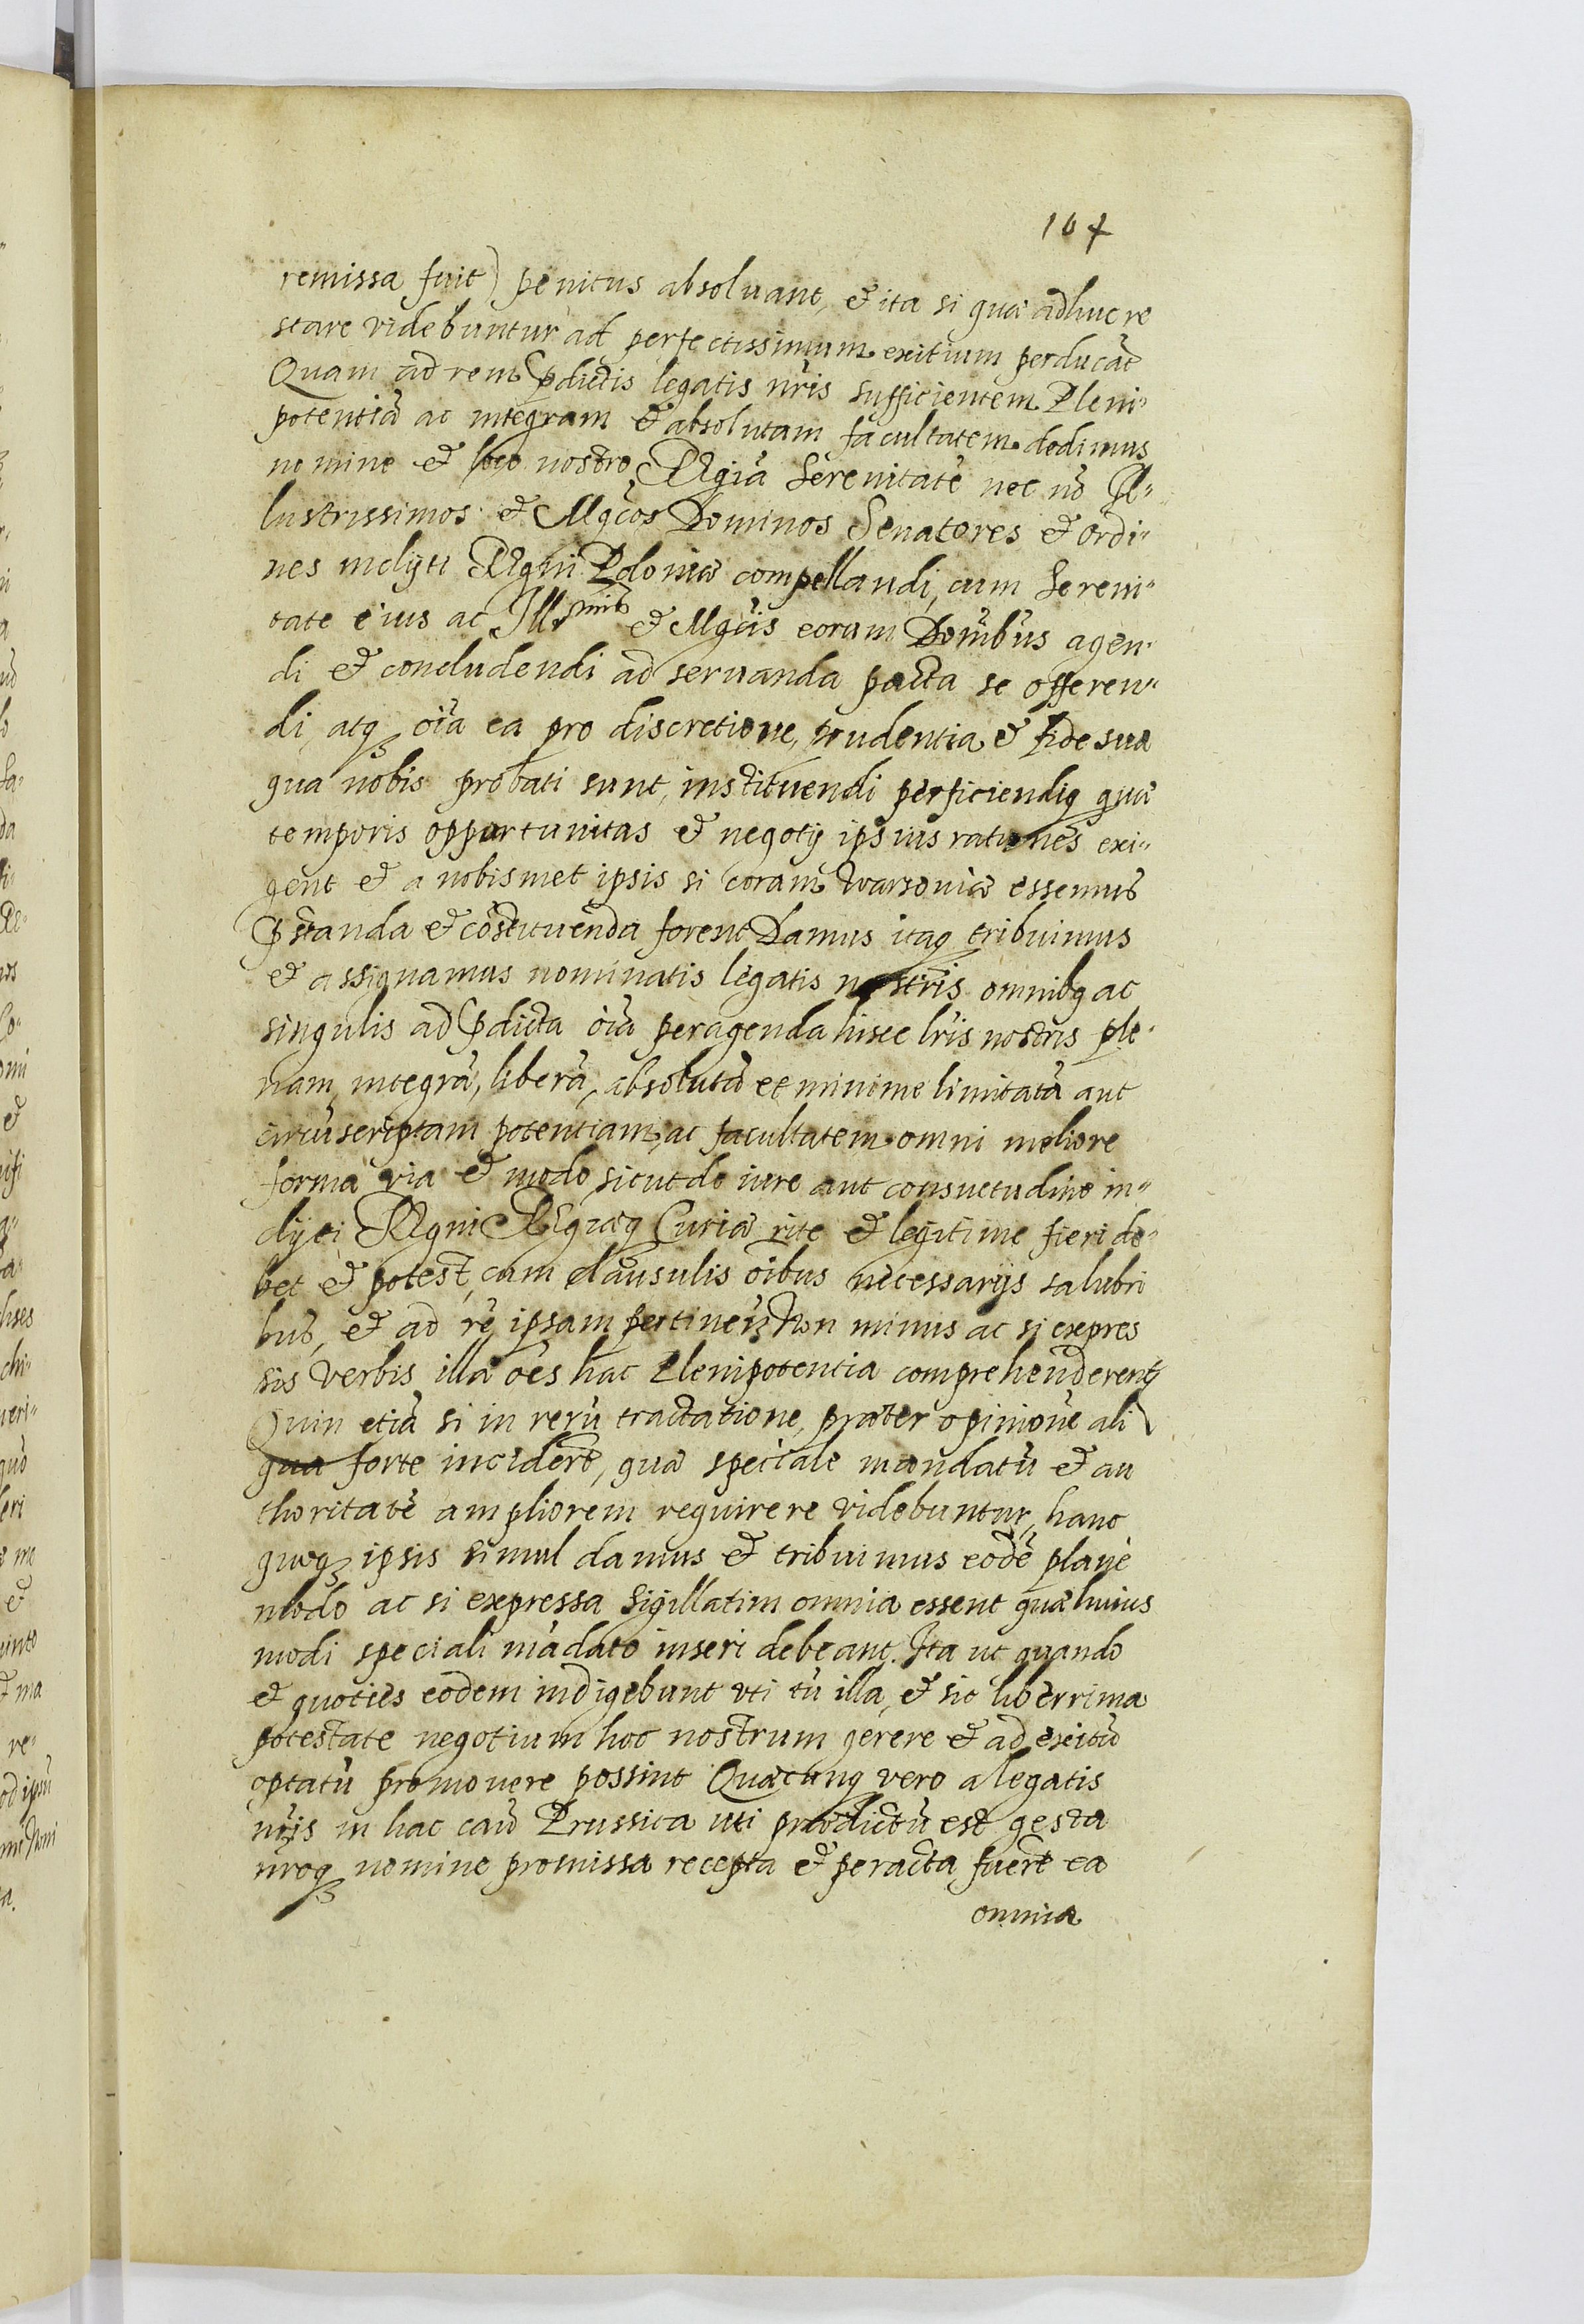 107
remissa fuit) penitus absoluant, et ita si quæ adhuc re
stare videbuntur ad perfectissimum exitium perducãt
Quam ad rem p̃dictis legatis nr̃is sufficientem Pleni"
potentiã ac integram et absolutam facultatem dedimus
nomine et loco nostro, Regiã Serenitatẽ nec nõ Il"
lustrissimos et Mg̃cos Dominos Senatores et ordi"
nes inclyti Regni Poloniæ compellandi, cum Sereni"
tate eius ac Ill.smis et Mg̃cis eorum Dom̃ibus agen"
di et concludendi ad seruanda pacta se offeren"
di, atq; oĩa ea pro discretione, prudentia et fide sua
qua nobis probati sunt, instituendi perficiendiq; quæ
temporis opportunitas et negotij ipsius rationes exi"
gent et a nobismet ipsis si coram Warsoviæ essemus
p̃standa et cõstituenda forent Damus itaq; tribuimus
et assignamus nominatis legatis nostris omnibq; ac
singulis ad p̃dicta oĩa peragenda hisce lr̃is nostris ple"
nam, integrã, liberã, absolutã et minime limitatã aut
circũscriptam potentiam, ac facultatem omni meliore
forma via et modo, sicut de iure aut consuetudine in"
clyti Regni Regiæq; Curiæ rite et legitime fieri de"
bet et potest, cum clausulis oĩbus necessarijs salubri
bus, et ad rẽ ipsam pertinen̄ Non minus ac si expres
sis verbis illa oẽs hac Plenipotentia comprehenderentr
Quin etiã si in rerũ tractatione, præter opinionẽ ali
qua forte inciderẽt, quæ speciale mandatũ et au
thoritatẽ ampliorem requirere videbuntur, hanc
quoq; ipsis simul damus et tribuimus eodẽ plane
modo ac si expressa sigillatim omnia essent quæ huius
modi speciali mãdato inseri debeant. Ita ut quando
et quoties eodem indigebunt uti tũ illa, et sic liberrima
potestate negotium hoc nostrum gerere et ad exitũ
optatũ promouere possint Quæcunq; vero a legatis
nr̃is in hac caũ Prussica uti prædictũ est gesta
nr̃oq; nomine promissa recepta et peracta fuerĩt ea
omnia